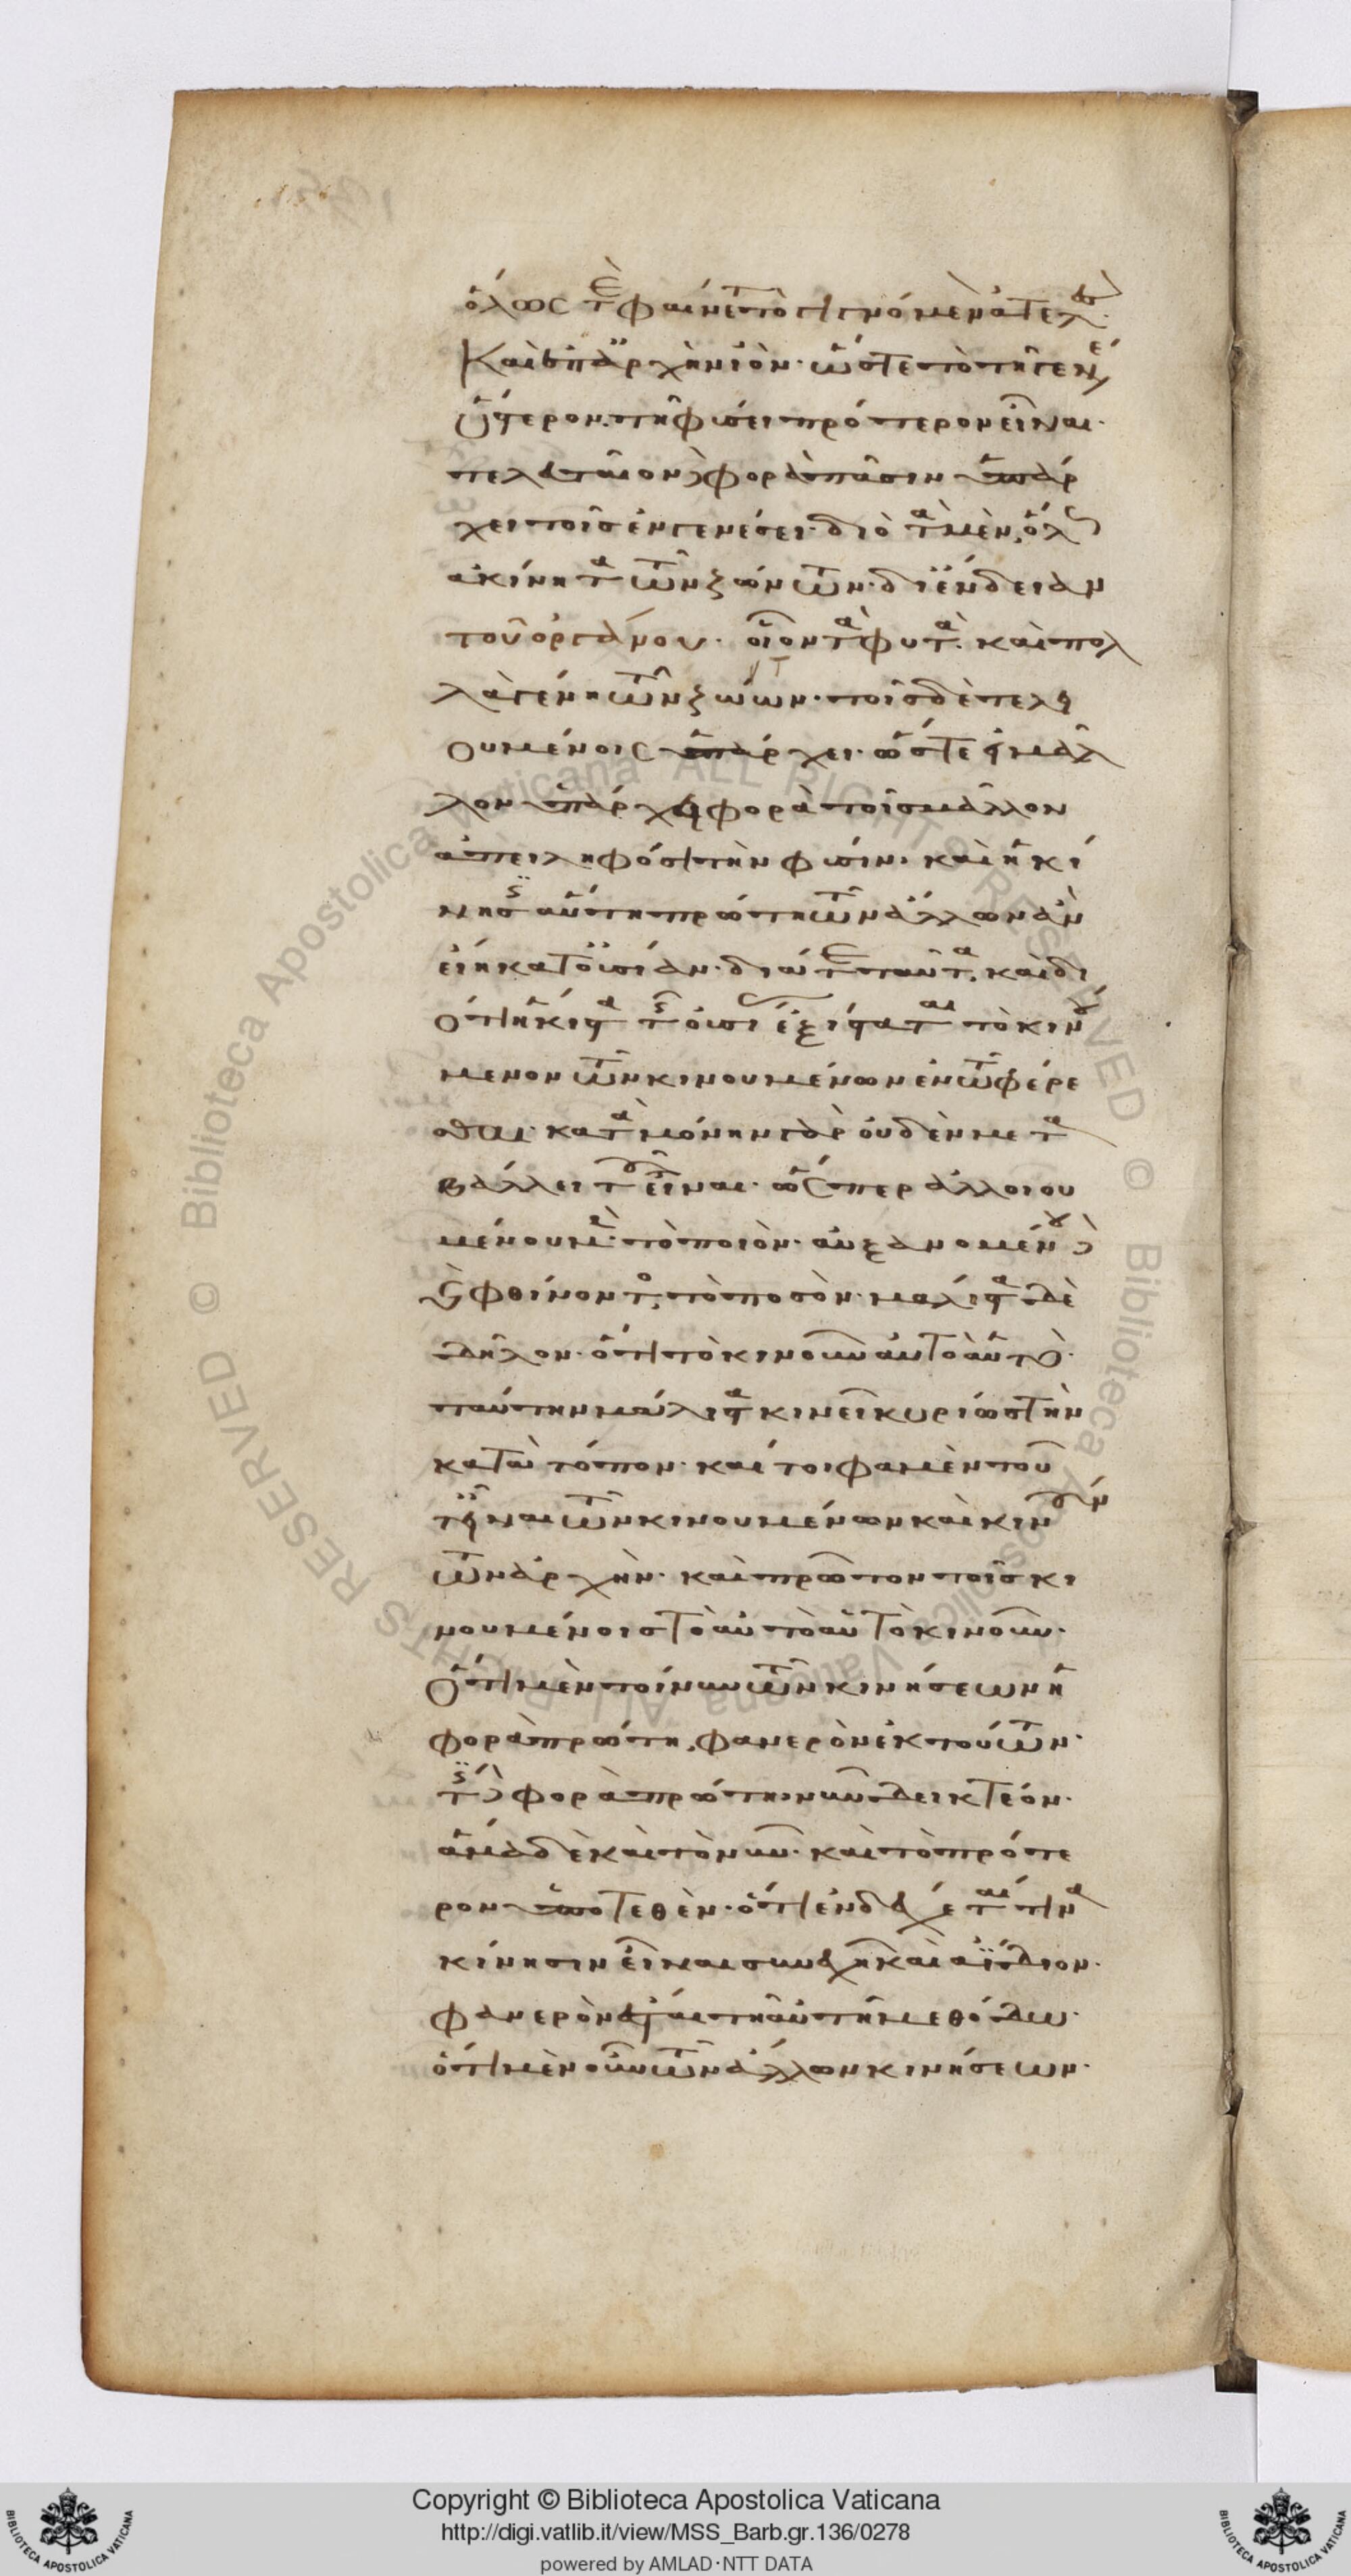 ὅλως τὲ φαίνεται τὸ γιγνόμενον ἀτελὲς·
Καὶ ἐπ' ἀρχὴν ἰὸν· ὥστε τὸ τῆ γενέσει
ὕστερον. τῆ φύσει πρότερον εἶναι·
τελευταῖον δὲ φορὰ πᾶσιν ὑπάρ
χει τοῖς ἐν γενέσει· διὸ τὰ μὲν, ὅλως
ἀκίνητα τῶν ζώντων· δι' ἔνδειαν
τοῦ ὀργάνου· οἷον τὰ φυτὰ· καὶ πολ
λὰ γένη τῶν ζώων· τοῖς δὲ τελει
ουμένοις ὑπάρχει· ὥστε εἰ μᾶλ
λον ὑπάρχει φορὰ τοῖς μᾶλλον
ἀπειληφόσι τὴν φύσιν· καὶ ἡ κί
νησις αὕτη πρώτη τῶν ἄλλων ἂν
εἴη κατ' οὐσίαν· διά τε ταῦτα, καὶ δι
ότι ἥκιστα τῆς οὐσίας ἐξίσταται τὸ κινού
μενον τῶν κινουμένων ἐν τῶ φέρε
σθαι· κατὰ μόνην γὰρ οὐδὲν μετα
βάλλει τοῦ εἶναι· ὥσπερ ἀλλοιου
μένου μὲν τὸ ποιὸν· αὐξανομένου δὲ
καὶ φθίνοντος, τὸ ποσὸν· μάλιστα δὲ
δῆλον· ὅτι τὸ κινοῦν αὐτὸ αὑτὸ·
ταύτην μάλιστα κινεῖ κυρίως τὴν
κατὰ τόπον· καί τοι φαμὲν τοῦ
τ' εἶναι τῶν κινουμένων καὶ κινούν
των ἀρχὴν· καὶ πρῶτον τοῖς κι
νουμένοις τὸ αὐτὸ αὑτὸ κινοῦν·
Ὅτι μὲν τοίνυν τῶν κινήσεων ἡ
φορὰ πρώτη, φανερὸν ἐκ τούτων·
τίς δὲ φορὰ πρώτη. νῦν δεικτέον·
ἅμα δὲ καὶ τὸ νῦν· καὶ τὸ πρότε
ρον ὑποτεθὲν· ὅτι ἐνδέχεταί τινα
κίνησιν εἶναι συνεχῆ καὶ ἀΐδιον·
φανερὸν ἔσται τῆ αὐτῆ μεθόδω·
ὅτι μὲν οὖν τῶν ἄλλων κινήσεων·
Copyright © Biblioteca Apostolica Vaticana
http://digi.vatlib.it/view/MSS_Barb.gr.136/0278
powered by AMLAD·NTT DATA